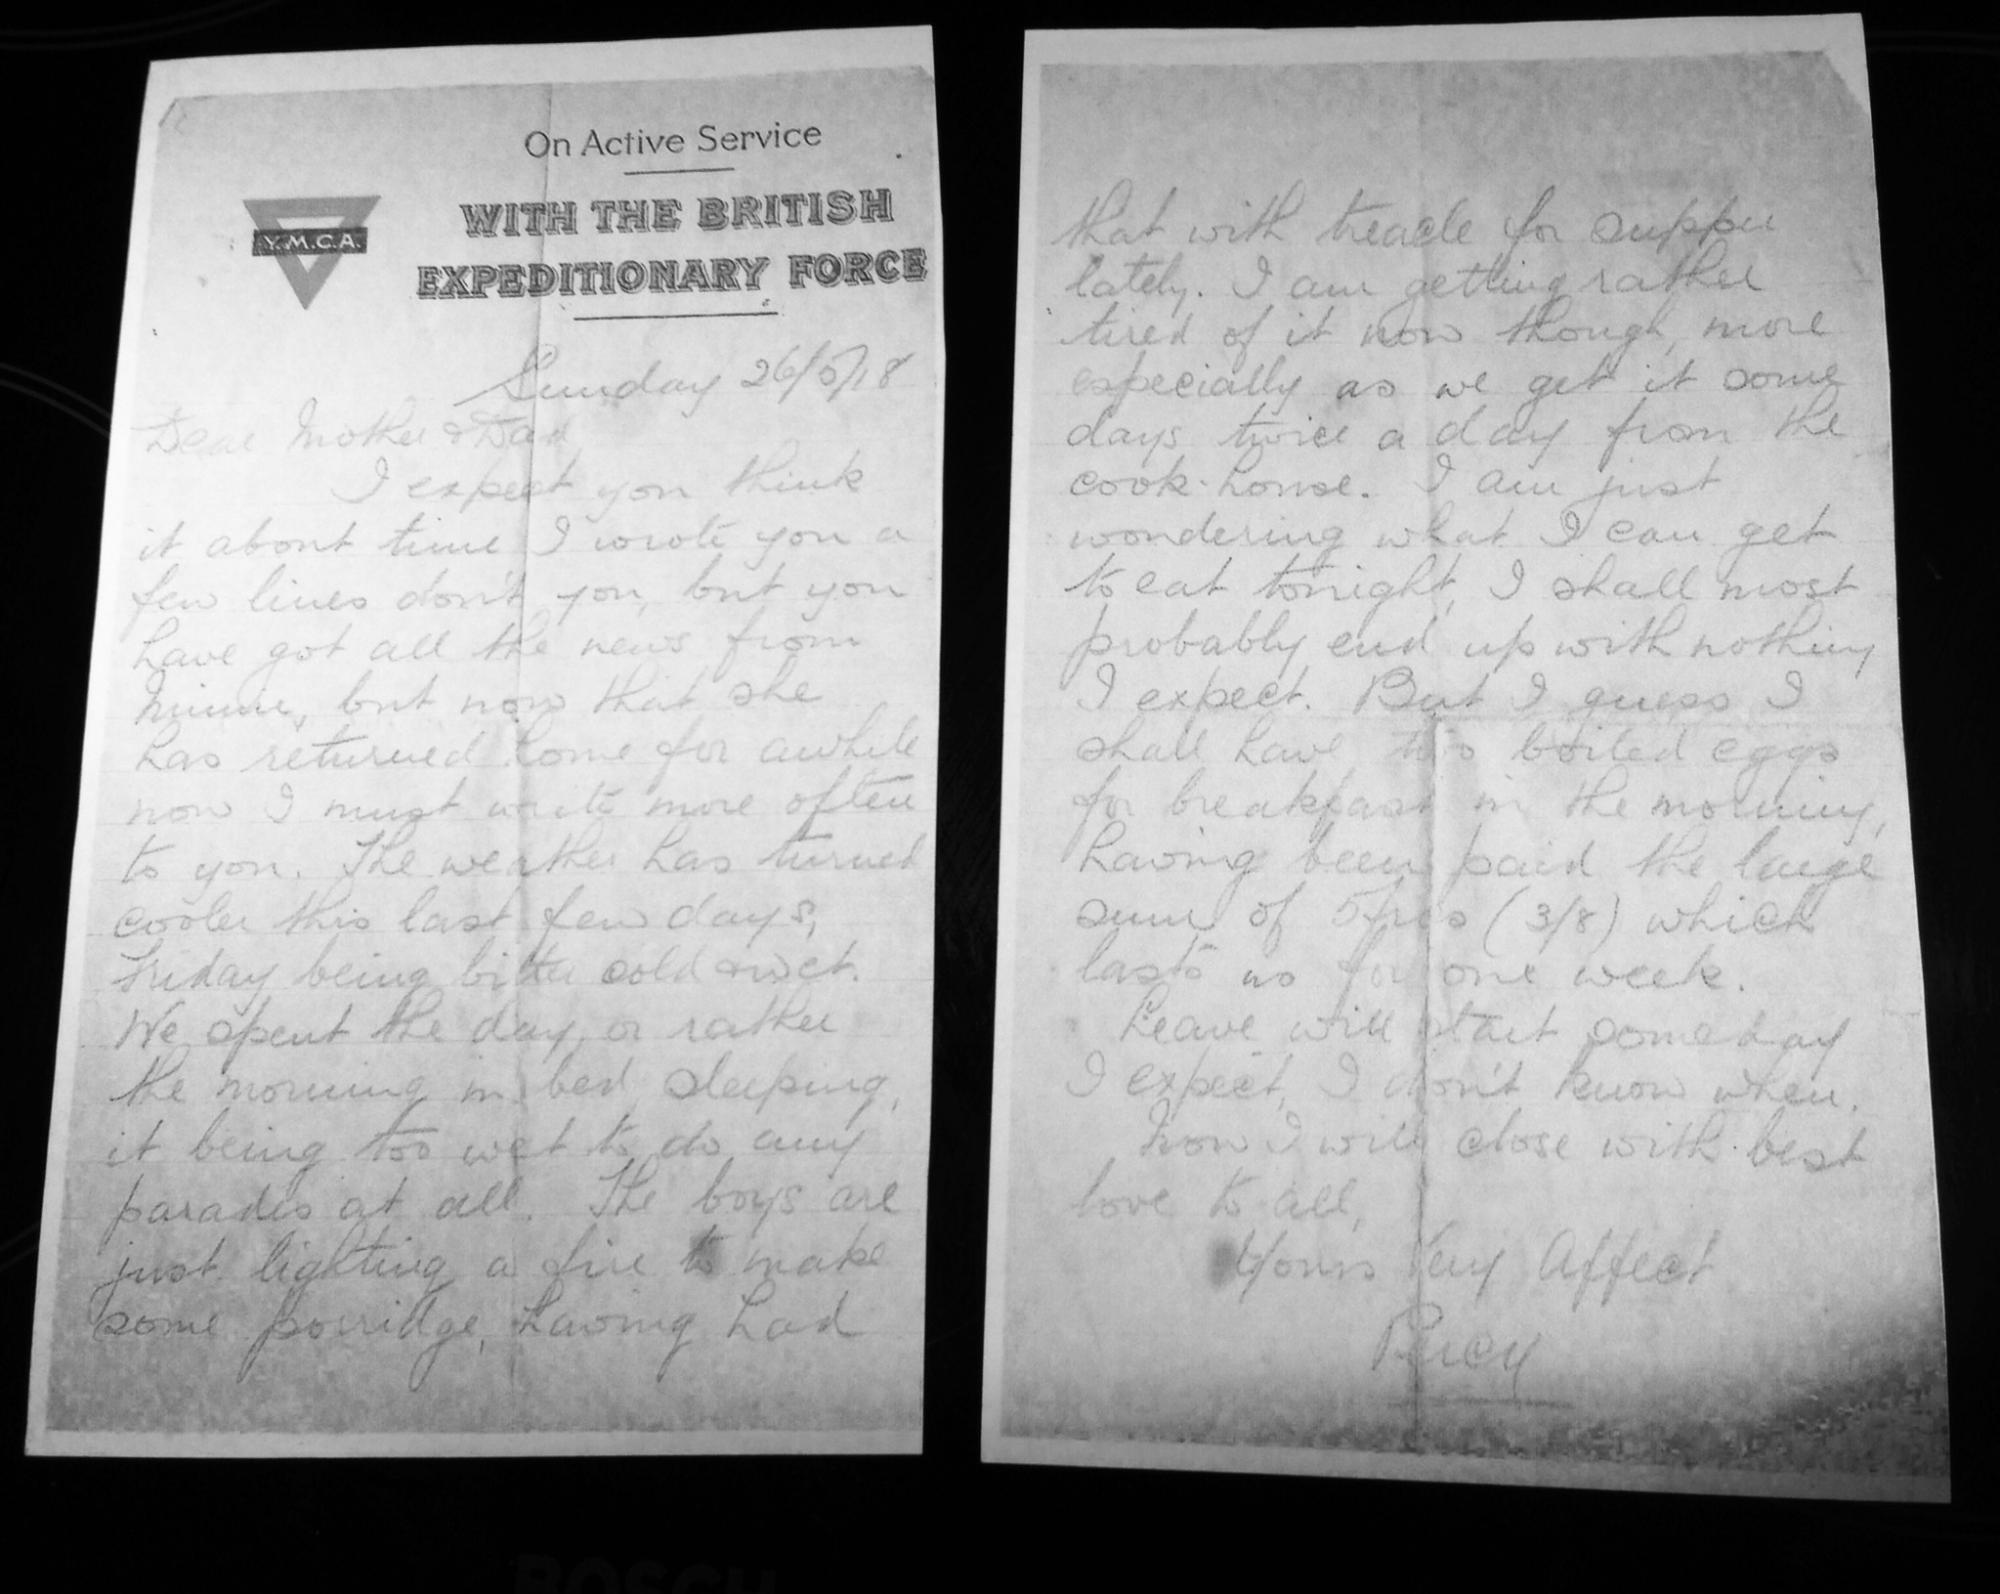 On Active Service
Y.M.C.A.
WITH THE BRITISH
EXPEDITIONARY FORCE
Sunday 26/5/18
Dear Mother & Dad
I expect you think
it about time I wrote you a
few lines don't you, but you
have got all the news from
Minnie, but now that she
has returned home for awhile
now I must write more often
to you. The weather has turned
cooler this last few days,
Friday being bitter cold & wet.
We spent the day, or rather
the morning in bed sleeping,
it being too wet to do any
parades at all. The boys are
just lighting a fire to make
some porridge, having had
that with treacle for supper
lately. I am getting rather
tired of it now though, more
especially as we get it some
days twice a day from the
cook-house. I am just
wondering what I can get
to eat tonight, I shall most
probably end up with nothing
I expect. But I guess I
shall have two boiled eggs
for breakfast in the morning,
having been paid the large
sum of 5frcs (3/8) which
lasts us for one week.
Leave will start someday
I expect, I don't know when.
Now I will close with best
love to all,
Yours Very Affect
Percy
BOSCH